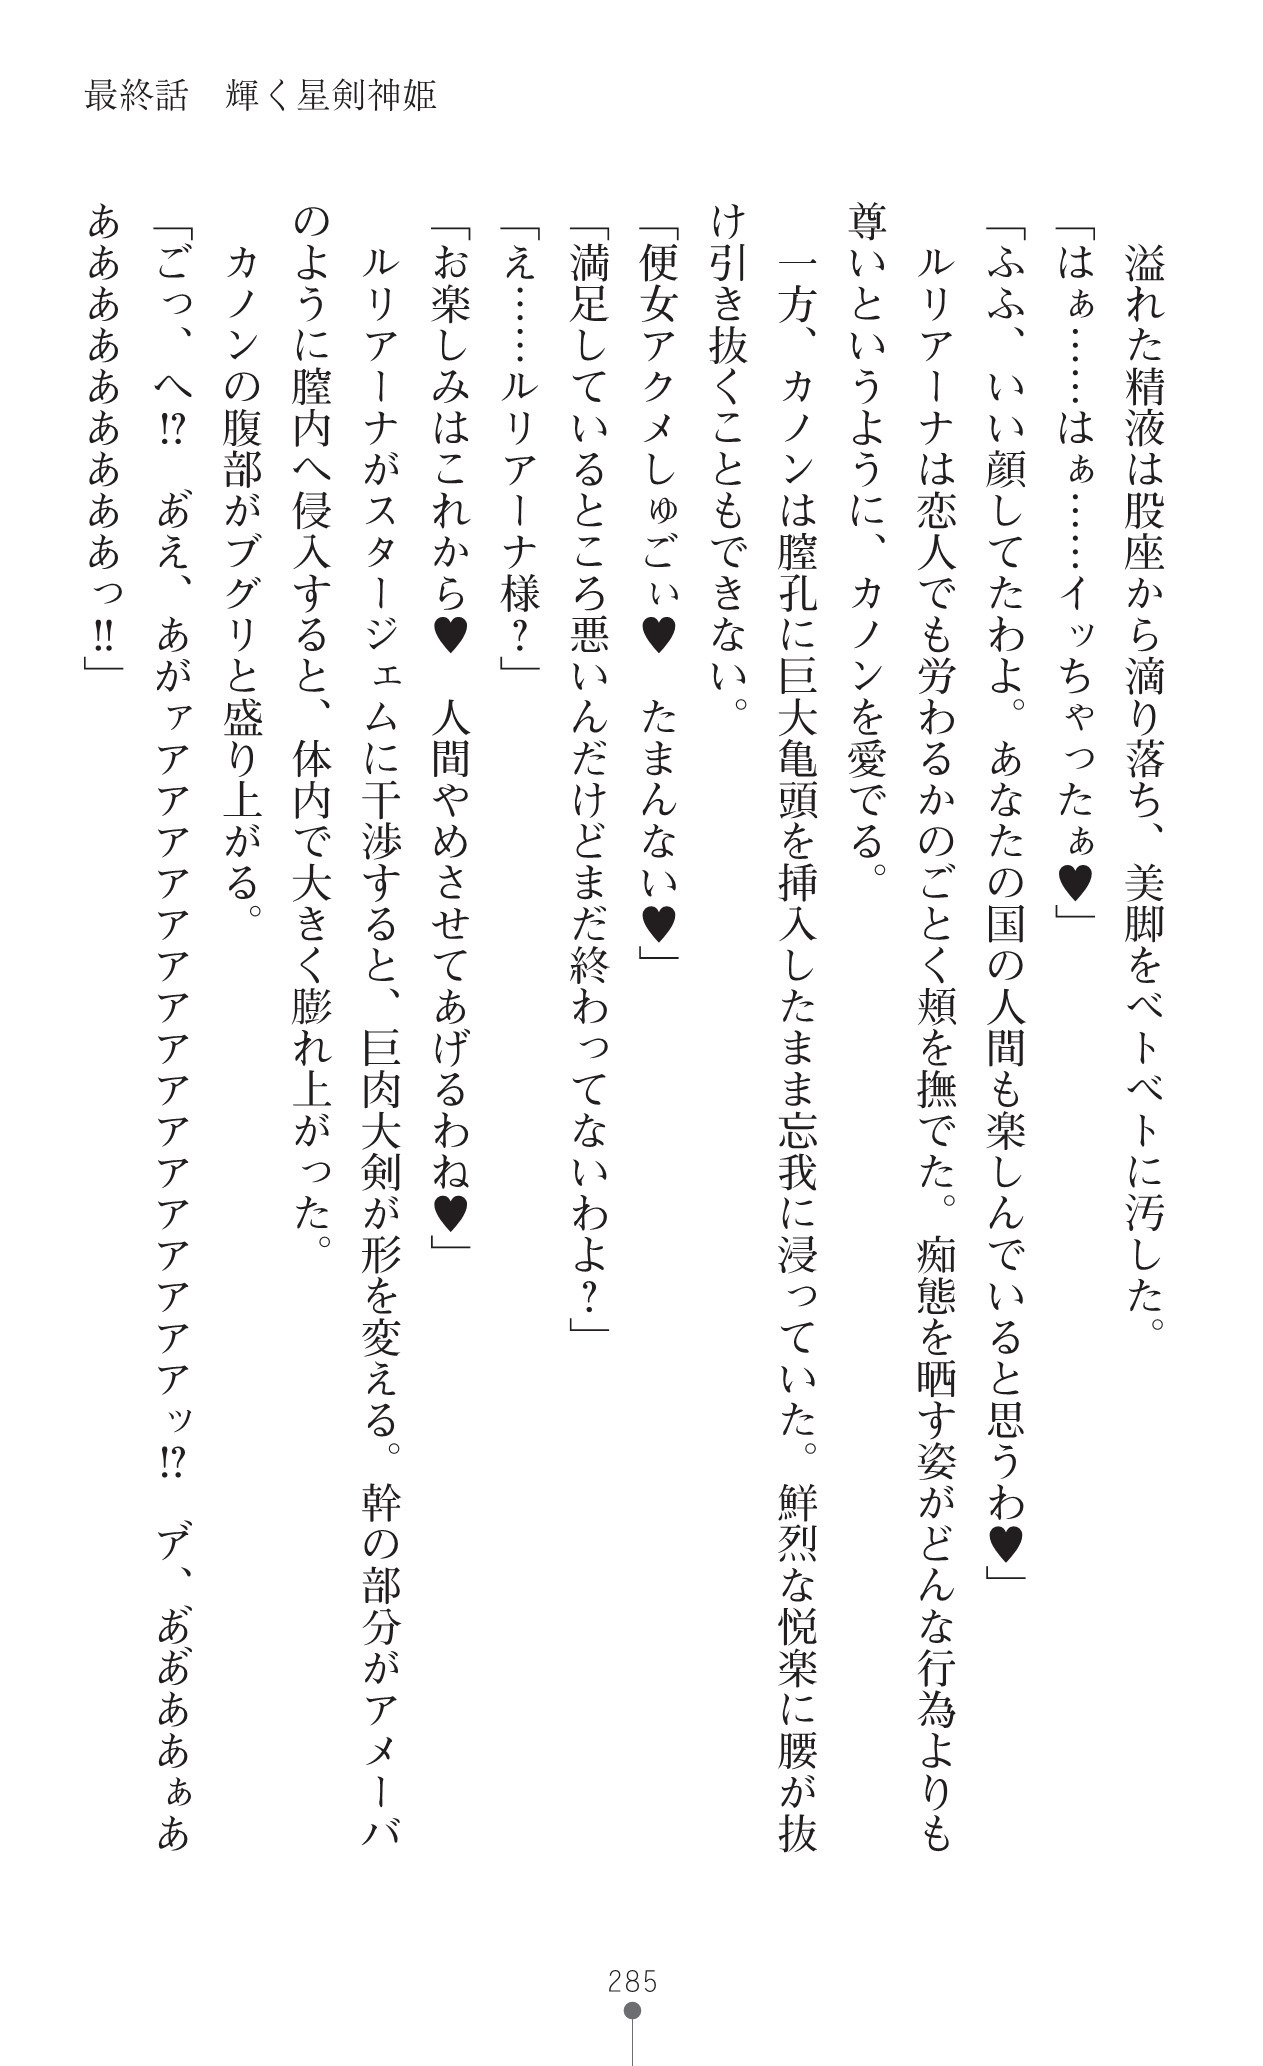 最終話　輝く星剣神姫
　溢れた精液は股座から滴り落ち、美脚をベトベトに汚した。
「はぁ……はぁ……イッちゃったぁ♥」
「ふふ、いい顔してたわよ。あなたの国の人間も楽しんでいると思うわ♥」
　ルリアーナは恋人でも労わるかのごとく頬を撫でた。痴態を晒す姿がどんな行為よりも
尊いというように、カノンを愛でる。
　一方、カノンは膣孔に巨大亀頭を挿入したまま忘我に浸っていた。鮮烈な悦楽に腰が抜
け引き抜くこともできない。
「便女アクメしゅごぃ♥　たまんない♥」
「満足しているところ悪いんだけどまだ終わってないわよ？」
「え……ルリアーナ様？」
「お楽しみはこれから♥　人間やめさせてあげるわね♥」
　ルリアーナがスタージェムに干渉すると、巨肉大剣が形を変える。幹の部分がアメーバ
のように膣内へ侵入すると、体内で大きく膨れ上がった。
　カノンの腹部がブグリと盛り上がる。
「ごっ、へ⁉　あ゙え、あがァアアアアアアアアアアアアアアアアッ⁉　ア゙、あ゙あ゙ああぁあ
あああああああああっ‼」
285